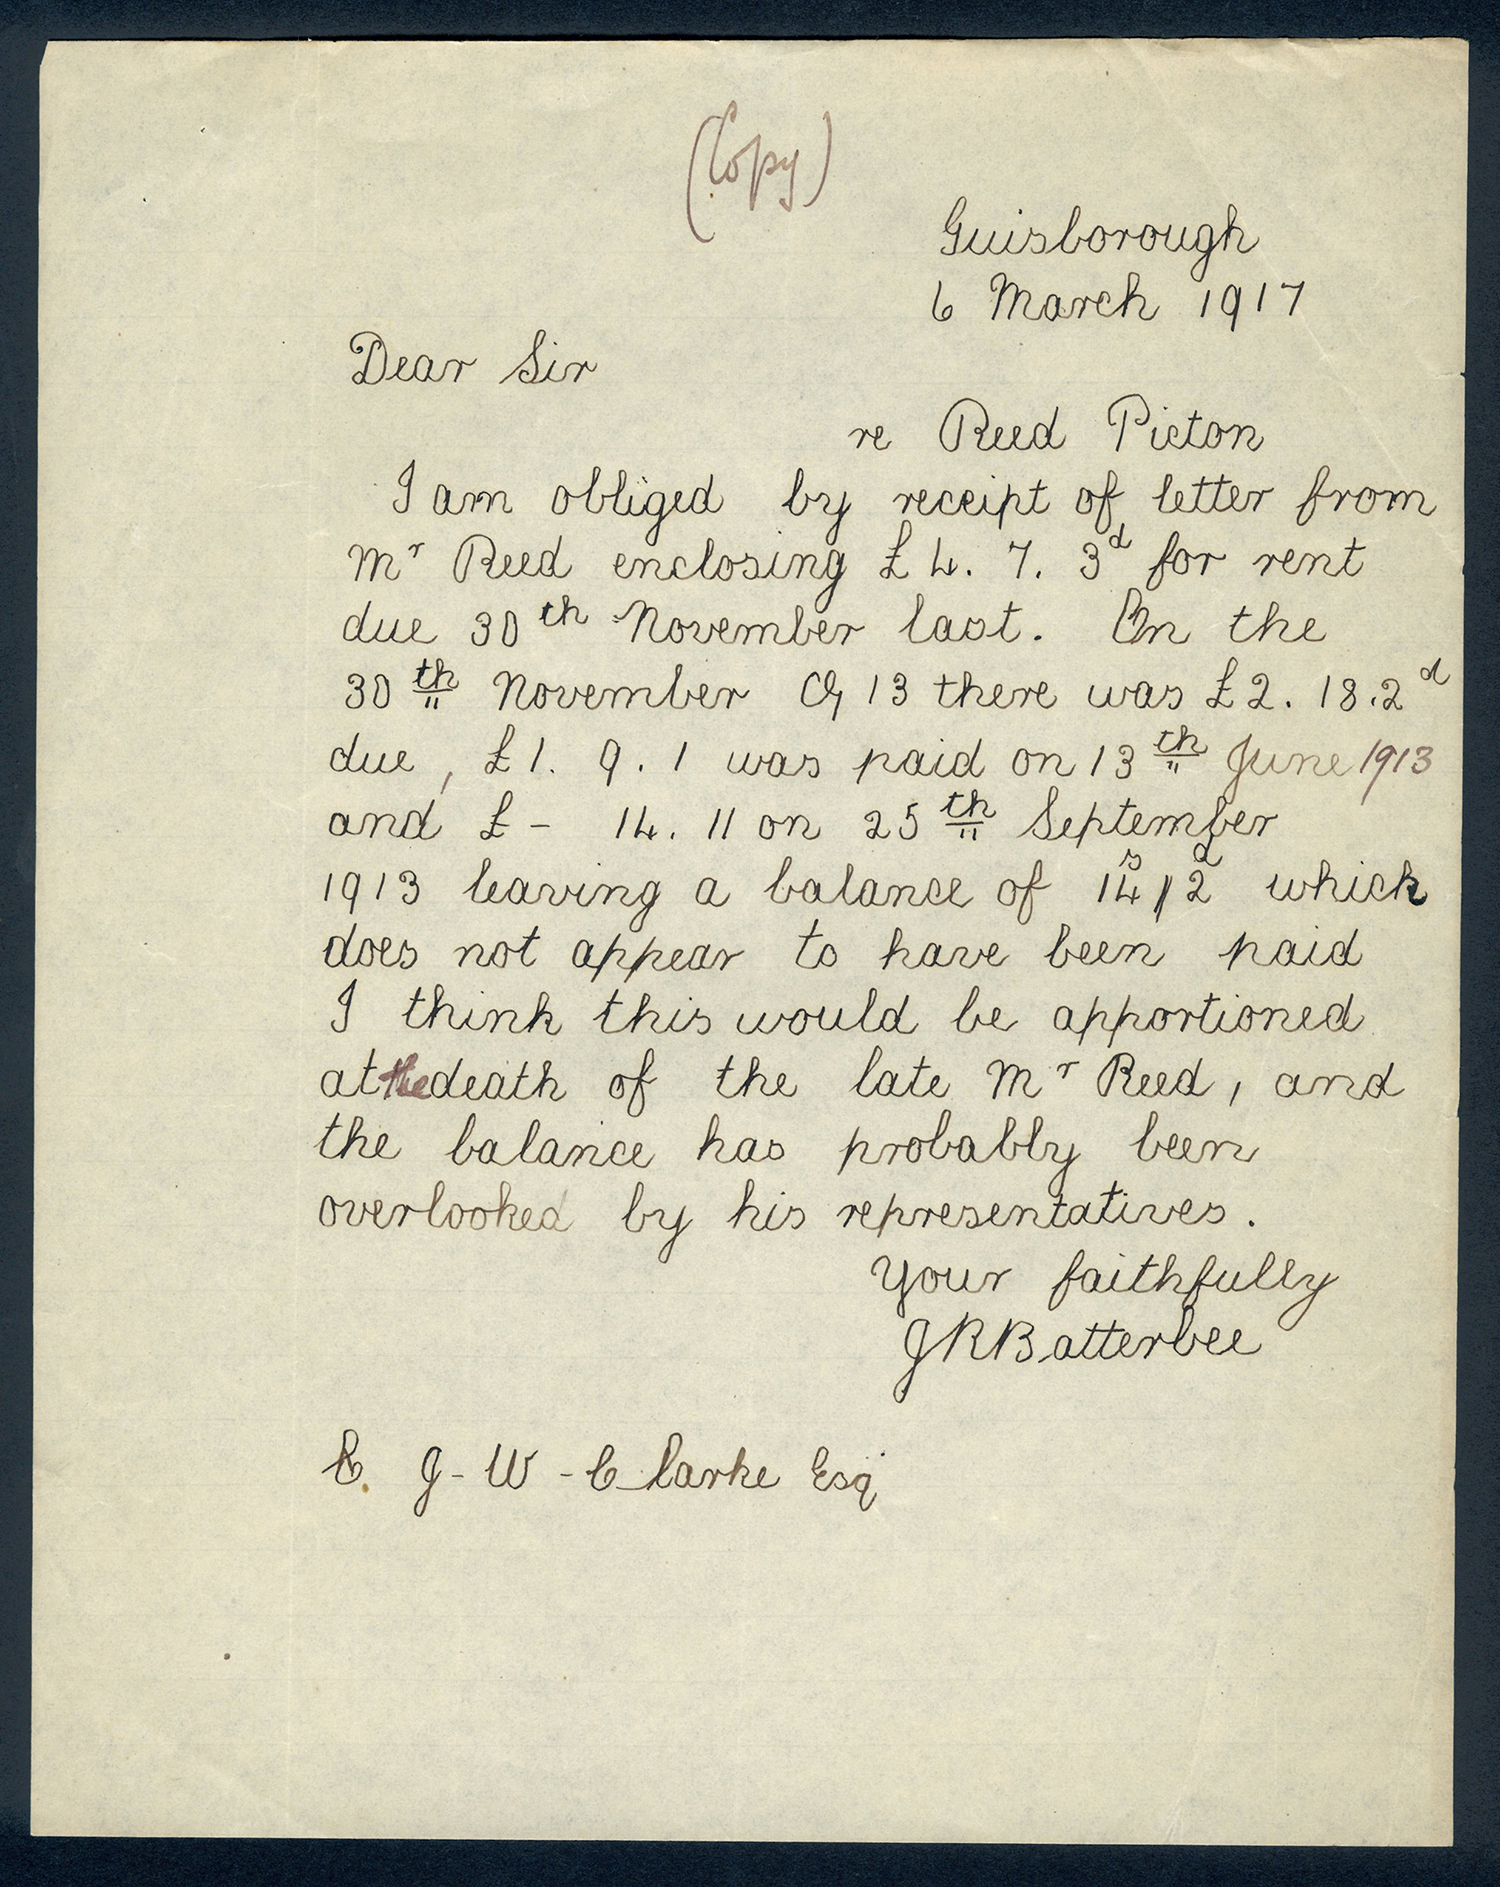 (Copy)
Guisborough
6 March 1917
Dear Sir
re Reed Picton
I am obliged by receipt of letter from
Mr Reed enclosing £4. 7. 3d for rent
due 30th November last. On the
30th November 1913 there was £2. 18. 2d
due, £1. 9. 1 was paid on 13th June 1913
and £ - 14. 11 on 25th September
1913 leaving a balance of 14s/2d which
does not appear to have been paid
I think this would be apportioned
at the death of the late Mr Reed, and
the balance has probably been
overlooked by his representatives.
Your faithfully
JRBatterbee
J-W-Clarke Esq